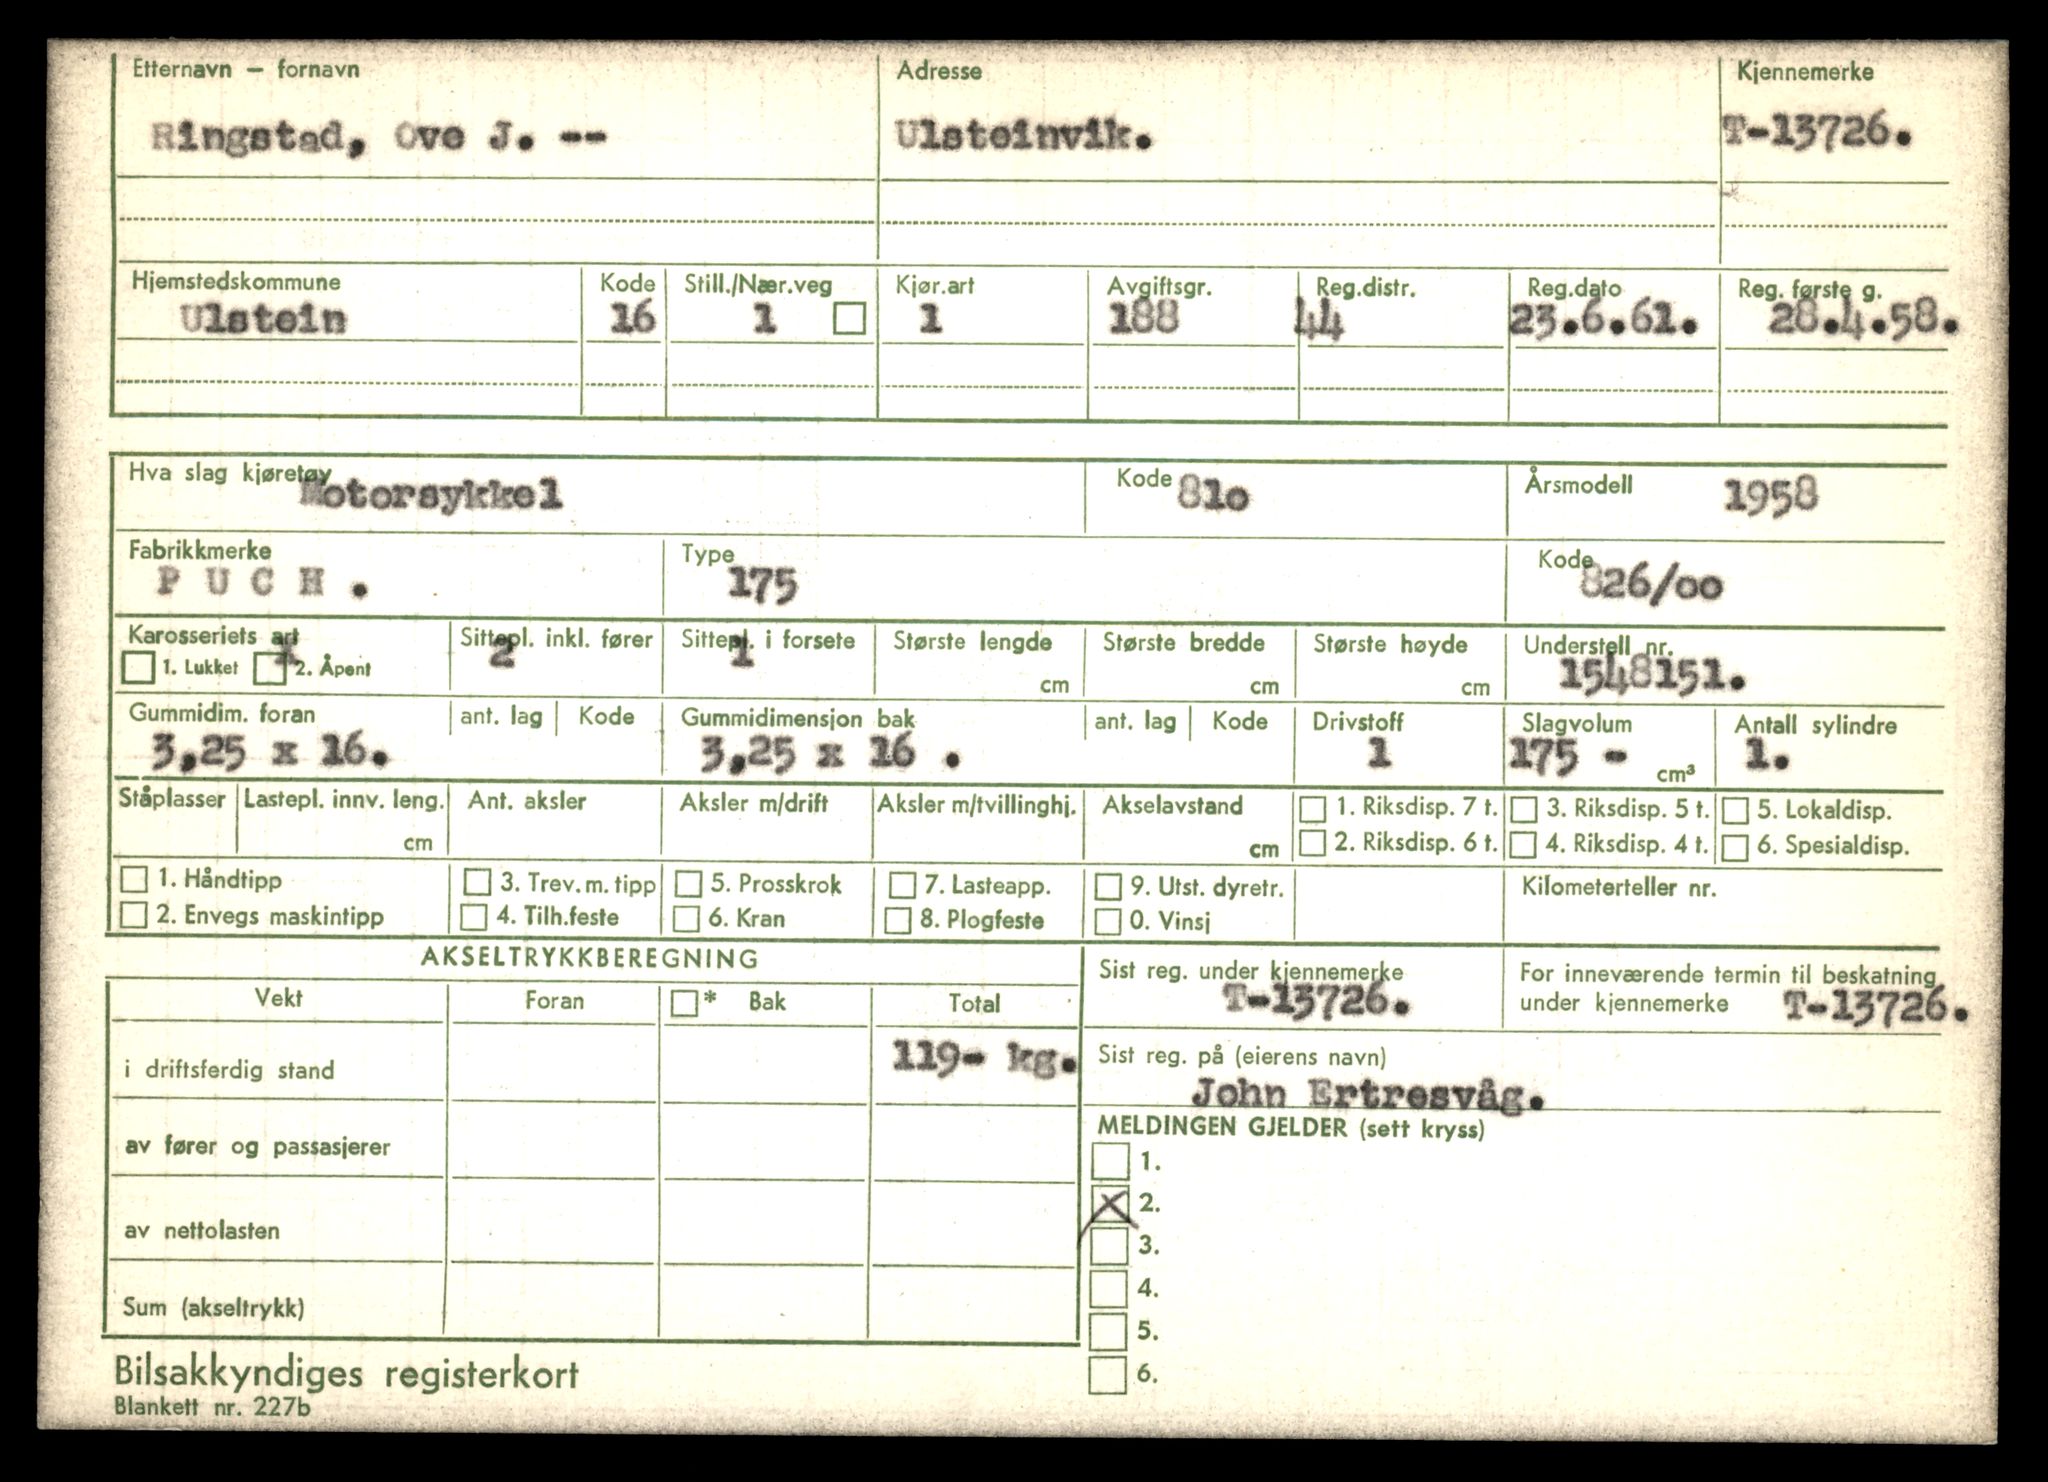 Etternavn – fornavn Adresse Kjennemerke
Ringstad, Ove J. -- Ulsteinvik. T-13726.
Hjemstedskommune Kode Still./Nær.veg Kjør.art Avgiftsgr. Reg.distr. Reg.dato Reg. første g.
Ulstein 16 1 1 188 44 23.6.61. 28.4.58.
Hva slag kjøretøy Motorsykkel Kode 81o Årsmodell 1958
Fabrikkmerke Type Kode
P U C H . 175 826/oo
Karosseriets art Sittepl. inkl. fører Sittepl. i forsete Største lengde Største bredde Største høyde Understell nr.
1. Lukket x 2. Åpent 2 1 cm cm cm 1548151.
Gummidim. foran ant. lag Kode Gummidimensjon bak ant. lag Kode Drivstoff Slagvolum Antall sylindre
3,25 x 16. 3,25 x 16 . 1 175 - cm³ 1.
Ståplasser Lastepl. innv. leng. Ant. aksler Aksler m/drift Aksler m/tvillinghj. Akselavstand 1. Riksdisp. 7 t. 3. Riksdisp. 5 t. 5. Lokaldisp.
cm cm 2. Riksdisp. 6 t. 4. Riksdisp. 4 t. 6. Spesialdisp.
1. Håndtipp 3. Trev. m. tipp 5. Prosskrok 7. Lasteapp. 9. Utst. dyretr. Kilometerteller nr.
2. Envegs maskintipp 4. Tilh.feste 6. Kran 8. Plogfeste 0. Vinsj
AKSELTRYKKBEREGNING
Vekt Foran * Bak Total
i driftsferdig stand 119- kg.
av fører og passasjerer
av nettolasten
Sum (akseltrykk)
Sist reg. under kjennemerke
T-13726.
For inneværende termin til beskatning
under kjennemerke T-13726.
Sist reg. på (eierens navn)
John Ertresvåg.
MELDINGEN GJELDER (sett kryss)
1.
X 2.
3.
4.
5.
6.
Bilsakkyndiges registerkort
Blankett nr. 227b